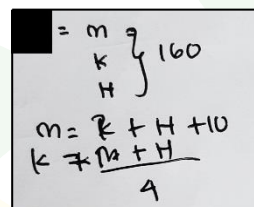 = m
k } 160
H
m = k + H + 10
k = m + H
4